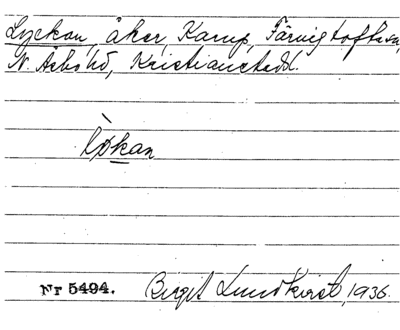 Lyckan, åker, Karup, Färingtofta sn,
N. Åsbo hd, Kristianstad l.
`lökan
Nr 5494. Birgit Lundkvist, 1936.